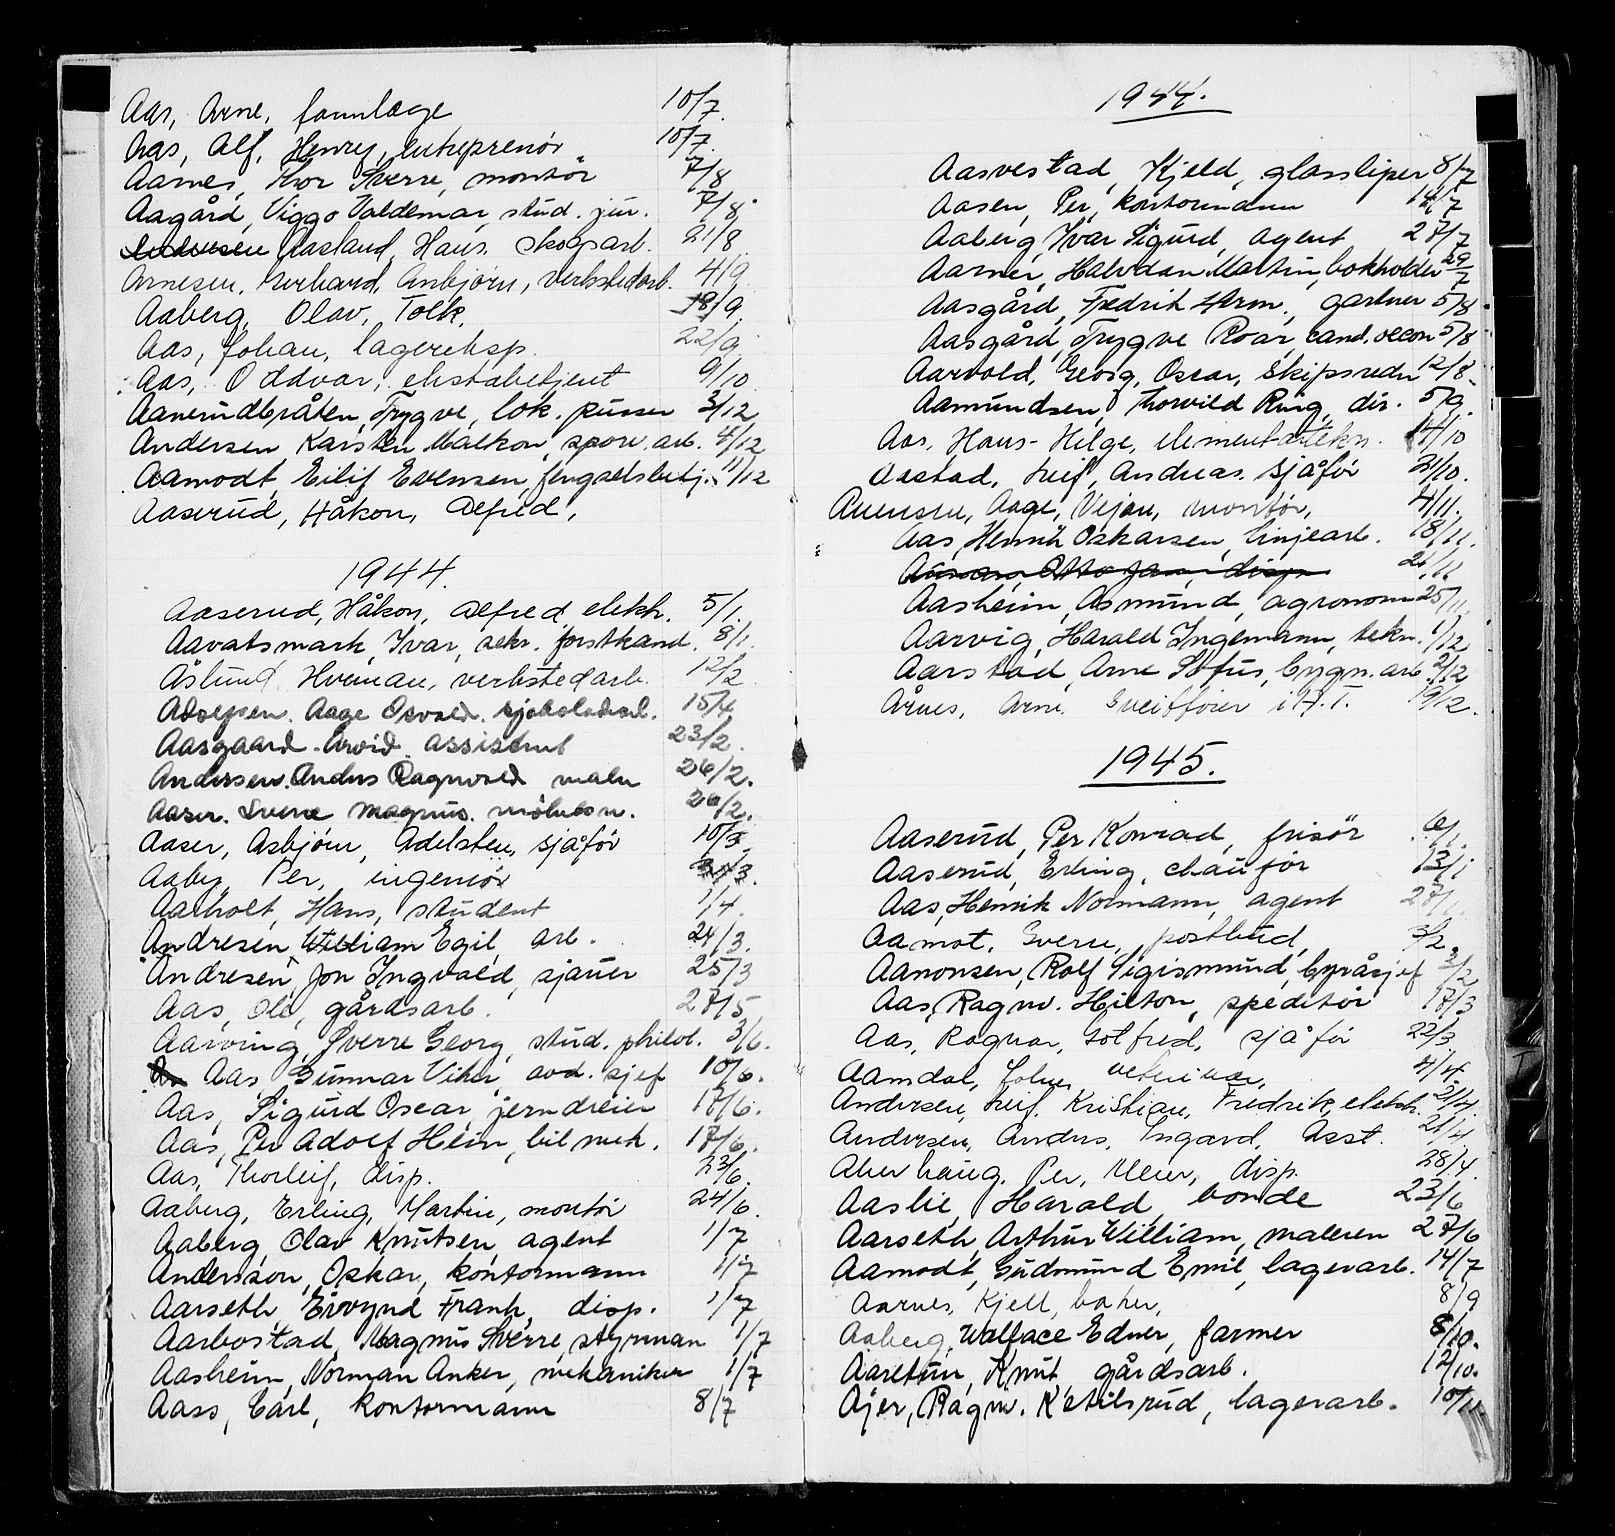 Aas, Arne, tannlæge 10/7.
Aas, Alf, Henry, entreprenör 10/7.
Aarnes, Thor Sverre, montör 7/8
Aagård, Viggo Valdemar, stud. jur. 7/8
Aasland, Hans. skogsarb. 21/8
Arnesen, Gerhard, Asbjörn, verkstedarb. 4/9
Aaberg, Olav, Tolk. 18/9.
Aas, Johan, lagereksp. 22/9
Aas, Oddvar, ekstrabetjent 9/10
Aanerudbråten, Trygve, lok. pusser 3/12
Andersen Karsten Malkon, sporv. arb. 4/12
Aamodt, Eilif Evensen, fengselsbetj. 11/12
Aaserud, Håkon, Alfred,
1944.
Aaserud, Håkon, Alfred, elektr. 5/1.
Aavatsmark, Ivar, sekr. forstkand. 8/1.
Åslund Herman, verkstedarb. 12/2
Adolfsen. Aage Osvald. sjokoladearb. 15/4
Aasgaard. Arvid. assistent 23/2.
Andersen. Anders Ragnvald maler 26/2.
Aaser. Sverre Magnus. møbelsn. 26/2.
Aaser, Asbjörn, Adelsten, sjåför 10/3
Aaby, Per, ingeniör 31/3.
Aaholt, Hans, student 1/4.
Andresen William Egil, arb. 24/3.
Andresen, Jon Ingvald, sjauer 25/3
Aas, Ole, gårdsarb. 27/5
Aarving, Sverre Georg, stud. philol. 3/6.
Aas, Gunnar Viker, avd. sjef 10/6.
Aas, Sigurd Oscar, jerndreier 17/6.
Aas, Per Adolf Hein, bil mek. 17/6.
Aas, Thorleif, disp. 23/6.
Aaberg, Erling, Martin, montör 24/6.
Aaberg, Olav Knutsen, agent 1/7
Anderson, Oskar, kontormann 1/7
Aarseth, Eivynd Frank, disp. 1/7
Aarbostad, Magnus Sverre, styrman 1/7
Aasheim, Norman Anker, mekaniker 1/7
Aass, Carl, kontormann 8/7
1944.
Aasvestad, Kjeld, glassliper 8/7
Aasen, Per, kontormann 14/7
Aaberg, Ivar Sigurd, agent 27/7
Aarnes, Halvdan Martin, bokholder 29/7
Aasgård, Fredrik Herm., gartner 5/8
Aasgård, Trygve Roar cand. oecon 5/8
Aarvold, Georg, Oscar, skipsreder 12/8.
Aamundsen, Thorvild Ring, dir. 5/9.
Aas, Hans-Helge, elementærtekn. 14/10
Aastad, Leif, Andreas. sjåför 21/10.
Aage, Vejan, montör, 4/11.
Aas, Henrik Oskarsen, linjearb. 18/11.
Otto Jan, disp. 21/11
Aasheim, Asmund, agronom 25/11.
Aarvig, Harald Ingemann, tekn. 1/12
Aarstad, Arne Sofus, bygn. arb 2/12
Årnes, Arne 19/12.
1945.
Aaserud, Per Konrad, frisör 6/1.
Aaserud, Erling, chaufför 13/1
Aas, Henrik Normann, agent 27/1.
Aamot, Sverre, postbud, 3/2.
Aanonsen, Rolf Sigismund, byråsjef 3/2
Aas, Ragnv. Hilton, speditör 17/3
Aas, Ragnar, Gotfred, sjåför 22/3
Aamdal, Johs, veterinær, 4/4.
Andersen, Leif, Kristian, Fredrik, elektr. 21/4.
Andersen, Anders, Ingard, Asst. 21/4
Akerhaug, Per, Meier, disp. 28/4.
Aaslie, Harald, bonde 23/6
Aarseth, Arthur William, maleren 27/6
Aamodt, Gudmund Emil, lagerarb. 14/7
Aarnes, Kjell, baker, 8/9
Aaberg, Wallace Edner, farmer 8/10.
Aaretun, Knut, gårdsarb. 12/10.
Åjer, Ragnv. Ketilsrud, lagerarb. 10/11